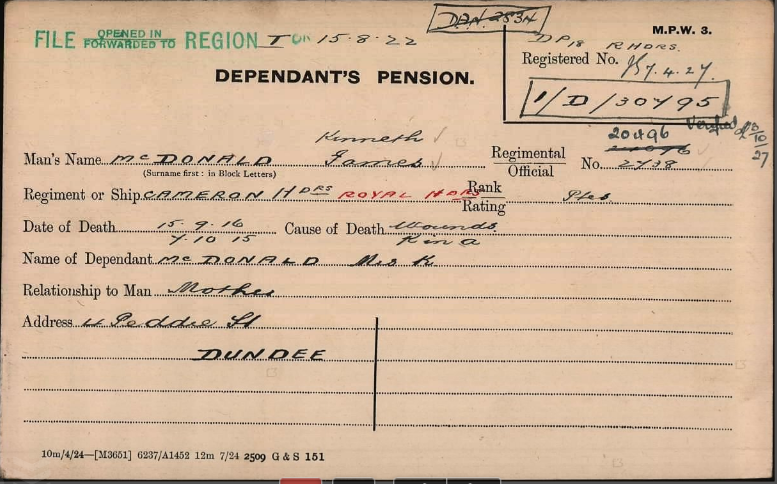 DPN. 2834
M.P.W. 3.
FILE OPENED IN FORWARDED TO REGION I ON 15.8.22
DP18 RHDRS.
Registered No. 7.4.27.
DEPENDANT'S PENSION.
1/D/30795
Verified 27
Kenneth 20496
Man's Name McDONALD James Regimental Official No. 2738
(Surname first : in Block Letters)
Regiment or Ship CAMERON HDRS ROYAL HDRS Rank Rating Ptes.
Date of Death 15.9.16 Cause of Death Wounds.
7.10 15 K in a
Name of Dependant McDONALD Mrs K
Relationship to Man Mother
Address Peddie St
DUNDEE
10m/4/24—[M3651] 6237/A1452 12m 7/24 2509 G & S 151